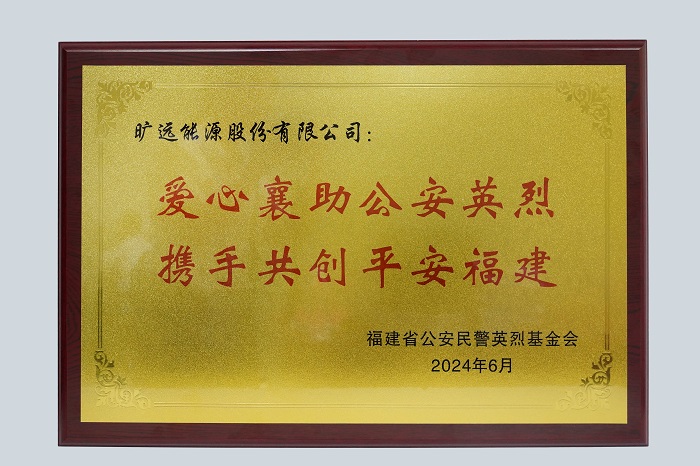 旷远能源股份有限公司：
爱心襄助公安英烈
携手共创平安福建
福建省公安民警英烈基金会
2024年6月